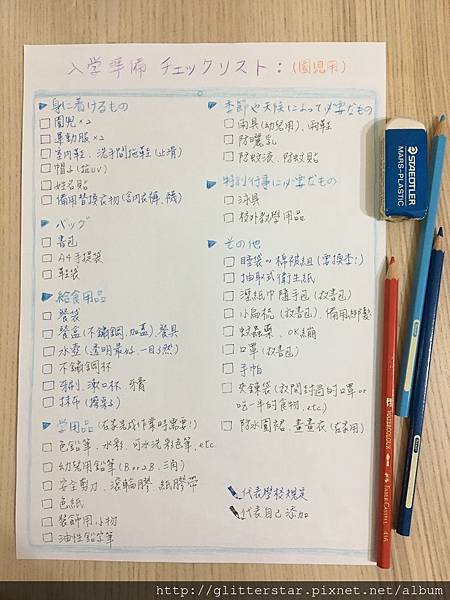 入学準備 チェックリスト：(園児用)
▶身に着けるもの
□ 園兜×2
□ 運動服×2
□ 室內鞋、洗手間拖鞋(止滑)
□ 帽子(抗UV)
□ 姓名貼
□ 備用替換衣物(含內衣褲、襪)
▶バッグ
□ 書包
□ A4手提袋
□ 鞋袋
▶給食用品
□ 餐袋
□ 餐盒(不鏽鋼、加蓋)、餐具
□ 水壺(透明最好、一目了然)
□ 不鏽鋼杯
□ 牙刷、漱口杯、牙膏
□ 抹布(擦桌子)
▶学用品(在家完成作業時需要!)
□ 色鉛筆、水彩、可水洗彩色筆、etc
□ 幼兒用鉛筆(B or 2B、三角)
□ 安全剪刀、滾輪膠、紙膠帶
□ 色紙
□ 裝飾用小物
□ 油性鉛字筆
▶季節や天候によって必要なもの
□ 雨具(幼兒用)、雨鞋
□ 防曬乳
□ 防蚊液、防蚊貼
▶特別行事に必要なもの
□ 泳具
□ 校外教學用品
▶その他
□ 睡袋 or 棉被組(要換季!)
□ 抽取式衛生紙
□ 溼紙巾隨手包(放書包)
□ 小扁梳(放書包)、備用綁髮
□ 蚊蟲藥、OK繃
□ 口罩(放書包)
□ 手帕
□ 夾鏈袋(放開封過的口罩or
吃一半的食物、etc)
□ 防水圍裙、畫畫衣(在家用)
代表學校規定
代表自己添加
STAEDTLER
MARS-PLASTIC
WATERCOLOUR
FABER-CASTELL
http://glitterstar.pixnet.net/album